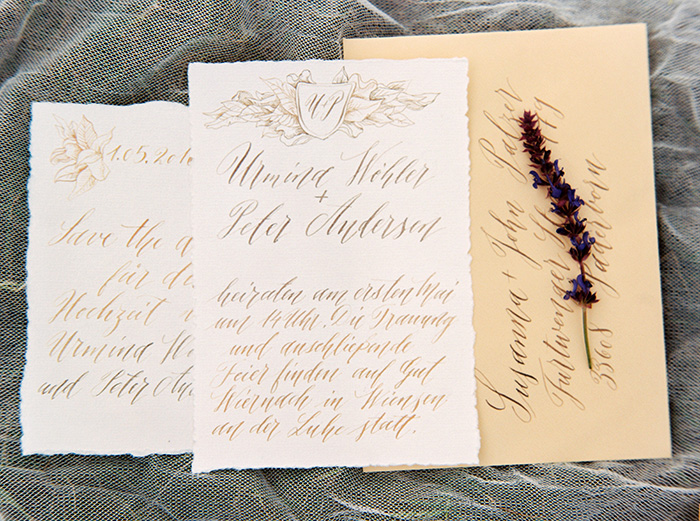 1.05.201
Save the
für
Hochzeit
Urmind
und Peter
UP
Urmind Wöhler
+
Peter Andersen
heiraten am ersten Mai
um 14 Uhr. Die Trauung
und anschließende
Feier finden auf Gut
Wiernach in Wiensen
an der Luhe statt.
Susanna + John Palzer
Furtwenger